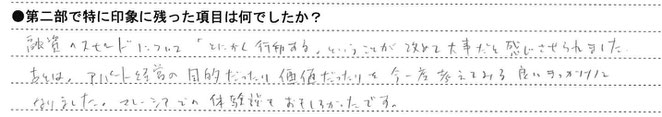 ●第二部で特に印象に残った項目は何でしたか？
融資のスピードについて「とにかく行動する」ということが改めて大事だと感じさせられました。
あとは、アパート経営の目的だったり価値だったりを今一度考えてみる良いきっかけに
なりました。マレーシアでの体験談もおもしろかったです。